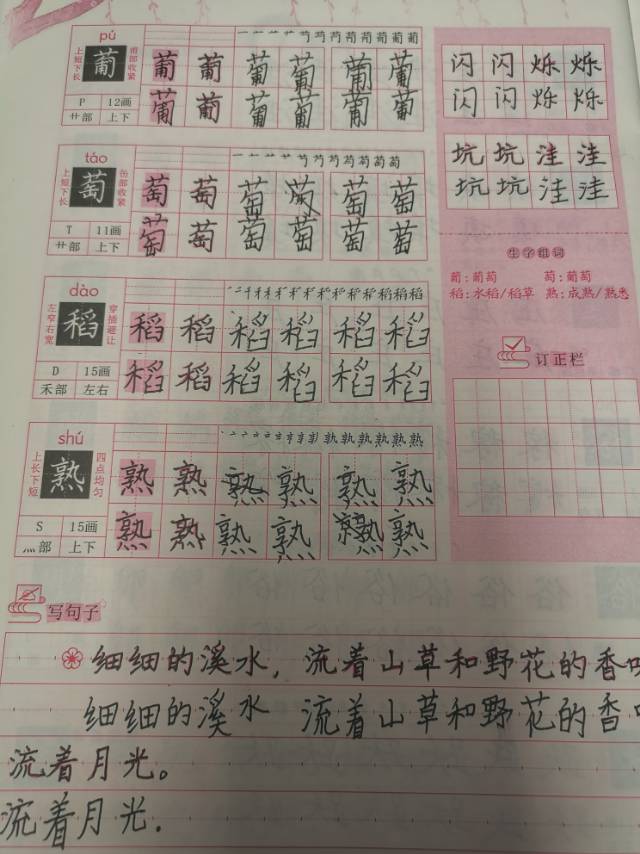 pú
葡
上短下长
甫部收紧
P 12画
艹部 上下
葡 葡 葡 葡 葡 葡
葡 葡 葡 葡 葡 葡
táo
萄
上短下长
缶部收紧
T 11画
艹部 上下
萄 萄 萄 萄 萄 萄
萄 萄 萄 萄 萄 萄
dào
稻
左窄右宽
穿插避让
D 15画
禾部 左右
稻 稻 稻 稻 稻 稻
稻 稻 稻 稻 稻 稻
shú
熟
上长下短
四点均匀
S 15画
灬部 上下
熟 熟 熟 熟 熟 熟
熟 熟 熟 熟 熟 熟
闪 闪 烁 烁
闪 闪 烁 烁
坑 坑 洼 洼
坑 坑 洼 洼
生字组词
葡:葡萄 萄:葡萄
稻:水稻/稻草 熟:成熟/熟悉
订正栏
写句子
细细的溪水,流着山草和野花的香
细细的溪水 流着山草和野花的香
流着月光。
流着月光.